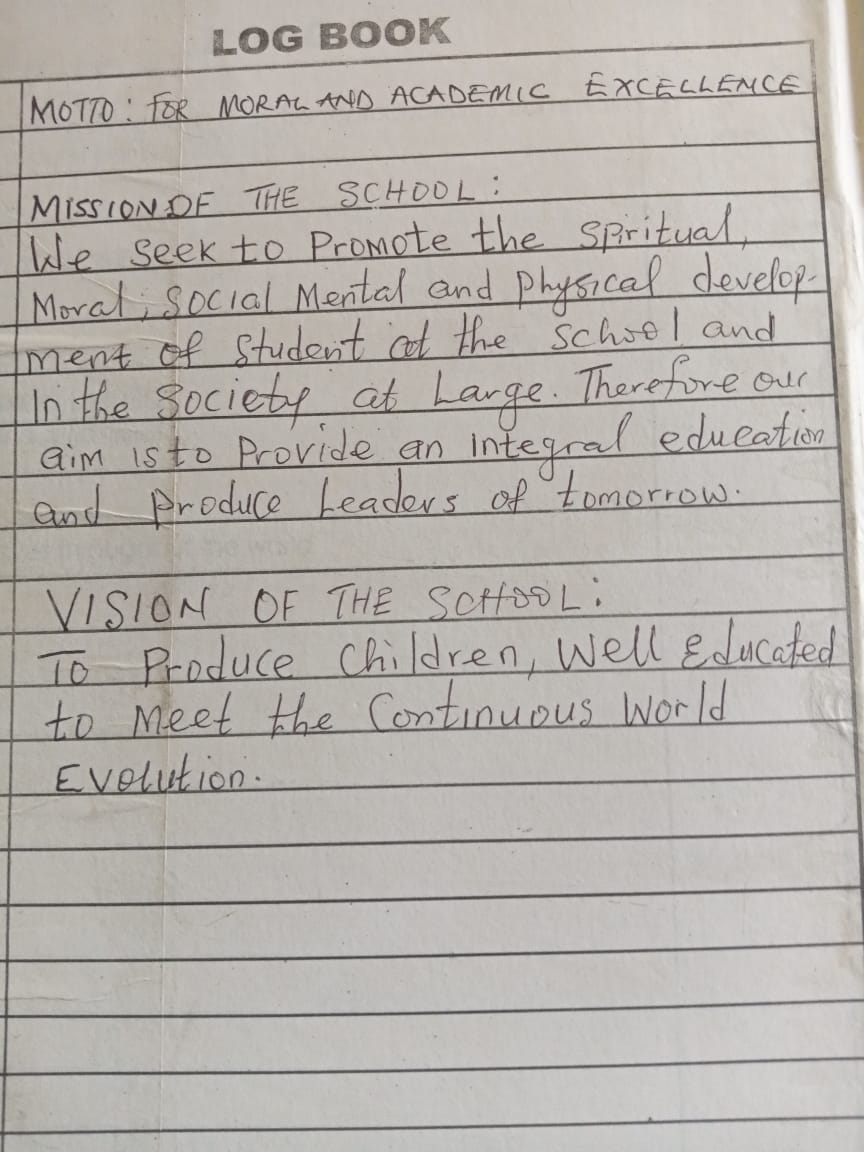 LOG BOOK
MOTTO: FOR MORAL AND ACADEMIC EXCELLENCE
MISSION OF THE SCHOOL:
We seek to Promote the Spiritual,
Moral, Social Mental and Physical develop-
ment of Student at the School and
In the Society at Large. Therefore our
aim is to Provide an integral education
and Produce Leaders of tomorrow.
VISION OF THE SCHOOL:
To Produce Children, Well Educated
to Meet the Continuous World
Evolution.